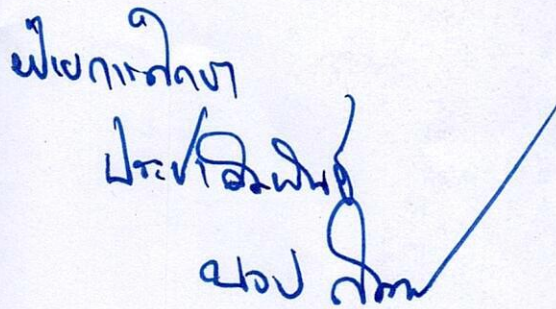 ฝ่ายการศึกษา
ประชาสัมพันธ์
มอบ